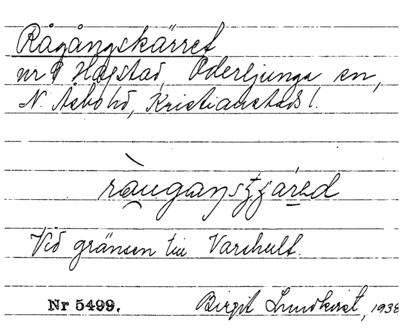 Rågångskärret
nr 9 Hagstad, Oderljunga sn,
N. Åsbo hd, Kristianstads l.
Vid gränsen till Varshult.
Nr 5499. Birgit Lundkvist, 1938